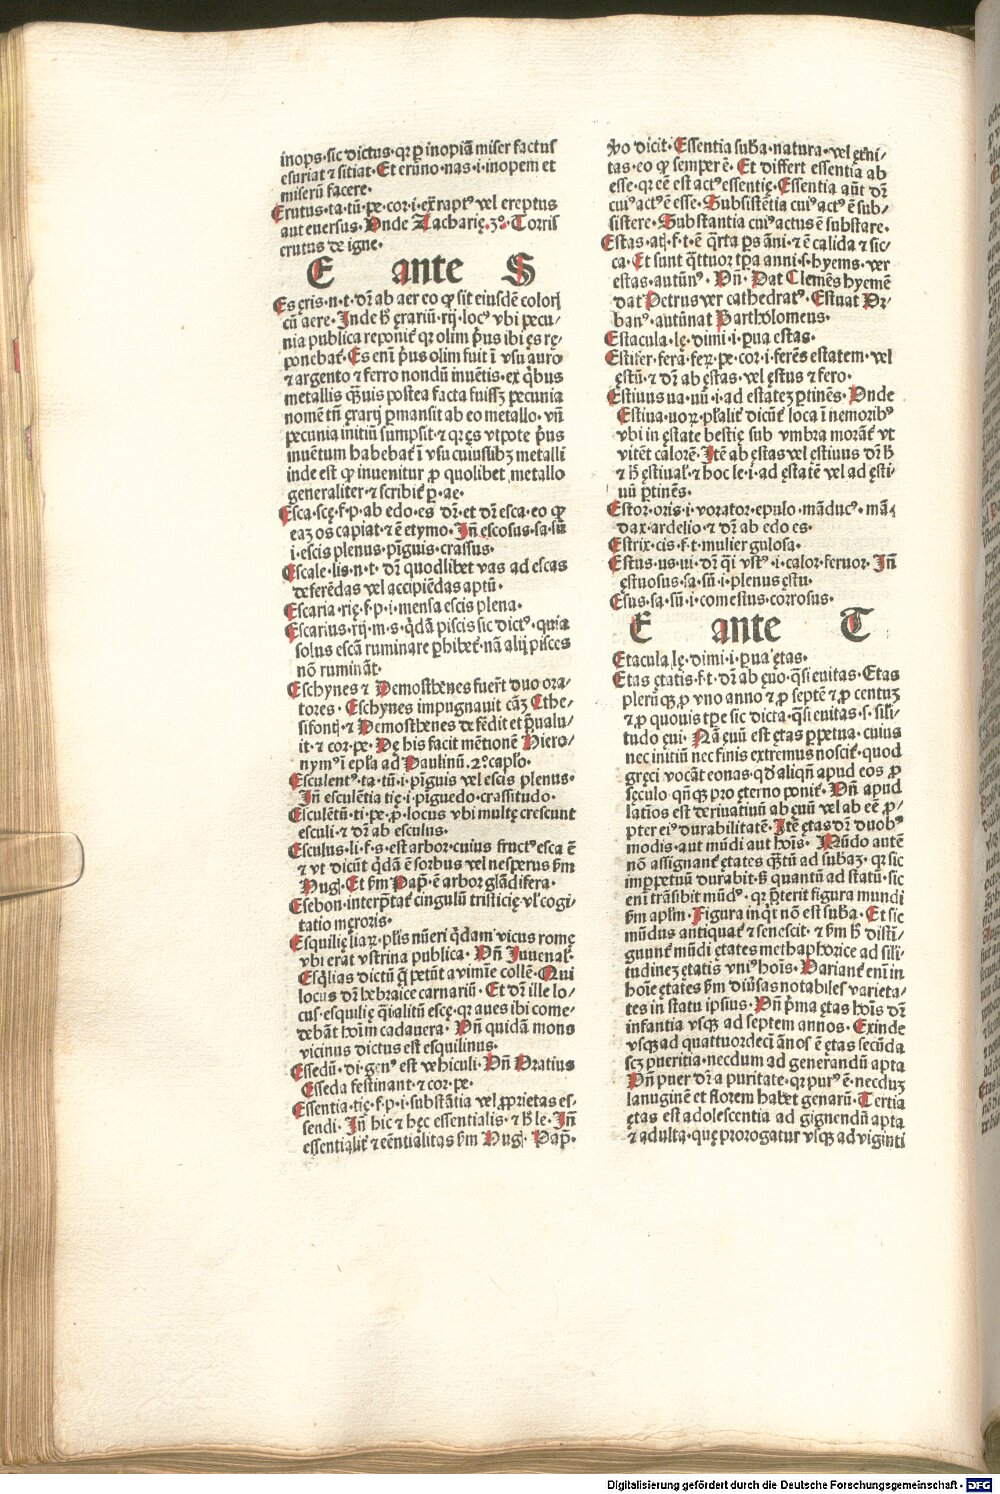 inops·sic dictus·qr ꝑ inopiā miser factus
esuriat ⁊ sitiat·Et erūno·nas·i·inopem et
miserū facere·
Erutus·ta·tū·pe·cor·i·extraptꝰ vel ereptus
aut eversus·Unde Zacharię·3º·Torris
erutus de igne·
E ante S
Es ęris·n·t·dr̄ ab aer eo ꝙ sit eiusdē coloris
cū aere·Inde h̄ ęrariū·rij·locꝰ vbi pecu/
nia publica reponit᷑ qr olim p̄us ibi ęs re/
ponebat᷑·Es eni p̄us olim fuit ī vsu auro
⁊ argento ⁊ ferro nondū inuētis·ex q̄bus
metallis q̄uis postea facta fuisꝫ pecunia
nomē tn̄ ęrarij ꝑmansit ab eo metallo·vn̄
pecunia initiū sumpsit·⁊ qr ęs vtpote p̄us
inuētum habebat᷑ ī vsu cuiuslibꝫ metalli
inde est ꝙ inuenitur ꝓ quolibet metallo
generaliter·⁊ scribit᷑ ꝑ·ae·
Esca·scę·f·p·ab edo·es dr̄·et dr̄ esca·eo ꝙ
eaꝫ os capiat·⁊ ē etymo·In̄ escosus·sa·sū
i·escis plenus·pīguis·crassus·
Escale·lis·n·t·dr̄ quodlibet vas ad escas
deferēdas vel accipiēdas aptū·
Escaria·rię·f·p·i·mensa escis plena·
Escarius·rij·m·s·q̄dā piscis sic dictꝰ·quia
solus escā ruminare ꝑhibet᷑·nā alij pisces
nō rumināt·
Eschynes ⁊ Demosthenes fuer̄t duo ora/
tores·Eschynes impugnauit cāꝫ Ethe/
sifontꝭ·⁊ Demosthenes defēdit et p̄ualu/
it·⁊ cor·pe·De his facit mētionē Hiero/
nymꝰ ī epl̄a ad Paulinū·2º·capl̄o·
Esculentꝰ·ta·tū·i·pīguis vel escis plenus·
In̄ esculētia tię·i·pīguedo·crassitudo·
Esculētū·ti·pe·ꝓ·locus vbi multę crescunt
esculi·⁊ dr̄ ab esculus·
Esculus·li·f·s·est arbor·cuius fructꝰ esca ē
⁊ vt dicūt q̄dā ē sorbus vel nesperus ẜm
Hug·Et ẜm Pap̄·ē arbor glādifera·
Esebon·interp̄tat᷑ cingulū tristicię vl̓ cogi/
tatio męroris·
Esquilię liaꝝ·pl̄is nūeri q̄dam vicus romę
vbi erat vstrina publica·Vn̄ Juuenal̓·
Esq̄lias dictū q̄ petūt a vimīe collē·Qui
locus dr̄ hebraice carnariū·Et dr̄ ille lo/
cus·esquilię q̄ialitū escę·qr aues ibi come/
debāt hoīm cadauera·Vn̄ quidā mons
vicinus dictus est esquilinus·
Essedū·di·genꝰ est vehiculi·Vn̄ Oratius
Esseda festinant·⁊ cor·pe·
Essentia·tię·f·p·i·substātia vel ꝓprietas es/
sendi·In̄ hic ⁊ hęc essentialis·⁊ h̄ le·In̄
essentialit᷑ ⁊ eēntialitas ẜm Hug·Pap̄·
ꝟo dicit·Essentia sub̄a·natura·vel gēni/
tas·eo ꝙ semper ē·Et differt essentia ab
esse·qr eē est actꝰ essentię·Essentia aūt dr̄
cuiꝰ actꝰ ē esse·Subsistētia cuiꝰ actꝰ ē sub/
sistere·Substantia cuiꝰ actus ē substare·
Estas·atꝭ·f·t·ē q̄rta ps āni·⁊ ē calida ⁊ sic/
ca·Et sunt q̄ttuor tp̄a anni·s·hyems·ver
estas·autūnꝰ·Vn̄·Dat Clemēs hyemē
dat Petrus ver cathedratꝰ·Estuat Vr/
banꝰ·autūnat Bartholomeus·
Estacula·lę·dimi·i·ꝑua estas·
Estifer·fera·feꝝ·pe·cor·i·ferēs estatem·vel
ęstū·⁊ dr̄ ab ęstas·vel ęstus ⁊ fero·
Estiuus ua·uū·i·ad estateꝫ ꝑtinēs·Unde
Estiua·uoꝝ·pl̄alit᷑ dicūt᷑ loca ī nemoribꝰ
vbi in ęstate bestię sub vmbra morāt᷑ vt
vitēt calorē·Itē ab ęstas vel ęstiuus dr̄ h̄
⁊ h̄ ęstiual̓·⁊ hoc le·i·ad ęstatē vel ad ęsti/
uū ꝑtinēs·
Estor·oris·i·vorator·epulo·māducꝰ·mā/
dax·ardelio·⁊ dr̄ ab edo es·
Estrix·cis·f·t·mulier gulosa·
Estus·us·ui·dr̄ q̄i vstꝰ·i·calor·feruor·In̄
ęstuosus·sa·sū·i·plenus ęstu·
Esus·sa·sū·i·comestus·corrosus·
E ante T
Etacula·lę·dimi·i·ꝑua ętas·
Etas ętatis·f·t·dr̄ ab ęuo·q̄si euitas·Etas
plerūqꝫ ꝓ vno anno ⁊ ꝓ septē ⁊ ꝓ centuꝫ
⁊ ꝓ quouis tp̄e sic dicta·q̄si euitas·s·sili/
tudo ęui·Nā ęuū est ętas ꝑpetua·cuius
nec initiū nec finis extremus noscit᷑·quod
gręci vocāt eonas·qd̓ aliqn̄ apud eos ꝓ
sęculo qn̄qꝫ pro ęterno ponit᷑·Vn̄ apud
latīos est deriuatiuū ab ęuū vel ab eē ꝓ/
pter eiꝰ durabilitatē·Itē ętas dr̄ duobꝰ
modis·aut mūdi aut hoīs·Mūdo autē
nō assignant᷑ ętates q̄tū ad sub̄aꝫ·qr sic
imꝑpetuū durabit·s̓ quantū ad statū·sic
eni trāsibit mūdꝰ·qr p̄terit figura mundi
ẜm apl̄m·Figura inq̄i nō est sub̄a·Et sic
mūdus antiquat᷑ ⁊ senescit·⁊ ẜm h̄ disti/
guunt᷑ mūdi ętates methaphorice ad sili
tudineꝫ ętatis vniꝰ hoīs·Variant᷑ eni in
hoīe ętates ẜm diūsas notabiles varieta/
tes in statu ipsius·Vn̄ p̄ma ętas hoīs dr̄
infantia vsqꝫ ad septem annos·Exinde
vsqꝫ ad quattuordecī ānos ē ętas secūda
scꝫ pueritia·necdum ad generandū apta
Vn̄ puer dr̄ a puritate·qr purꝰ ē·necduꝫ
lanuginē et florem habet genarū·Tertia
ętas est adolescentia ad gignendū apta
⁊ adulta·quę prorogatur vsqꝫ ad viginti
Digitalisierung gefördert durch die Deutsche Forschungsgemeinschaft - DFG